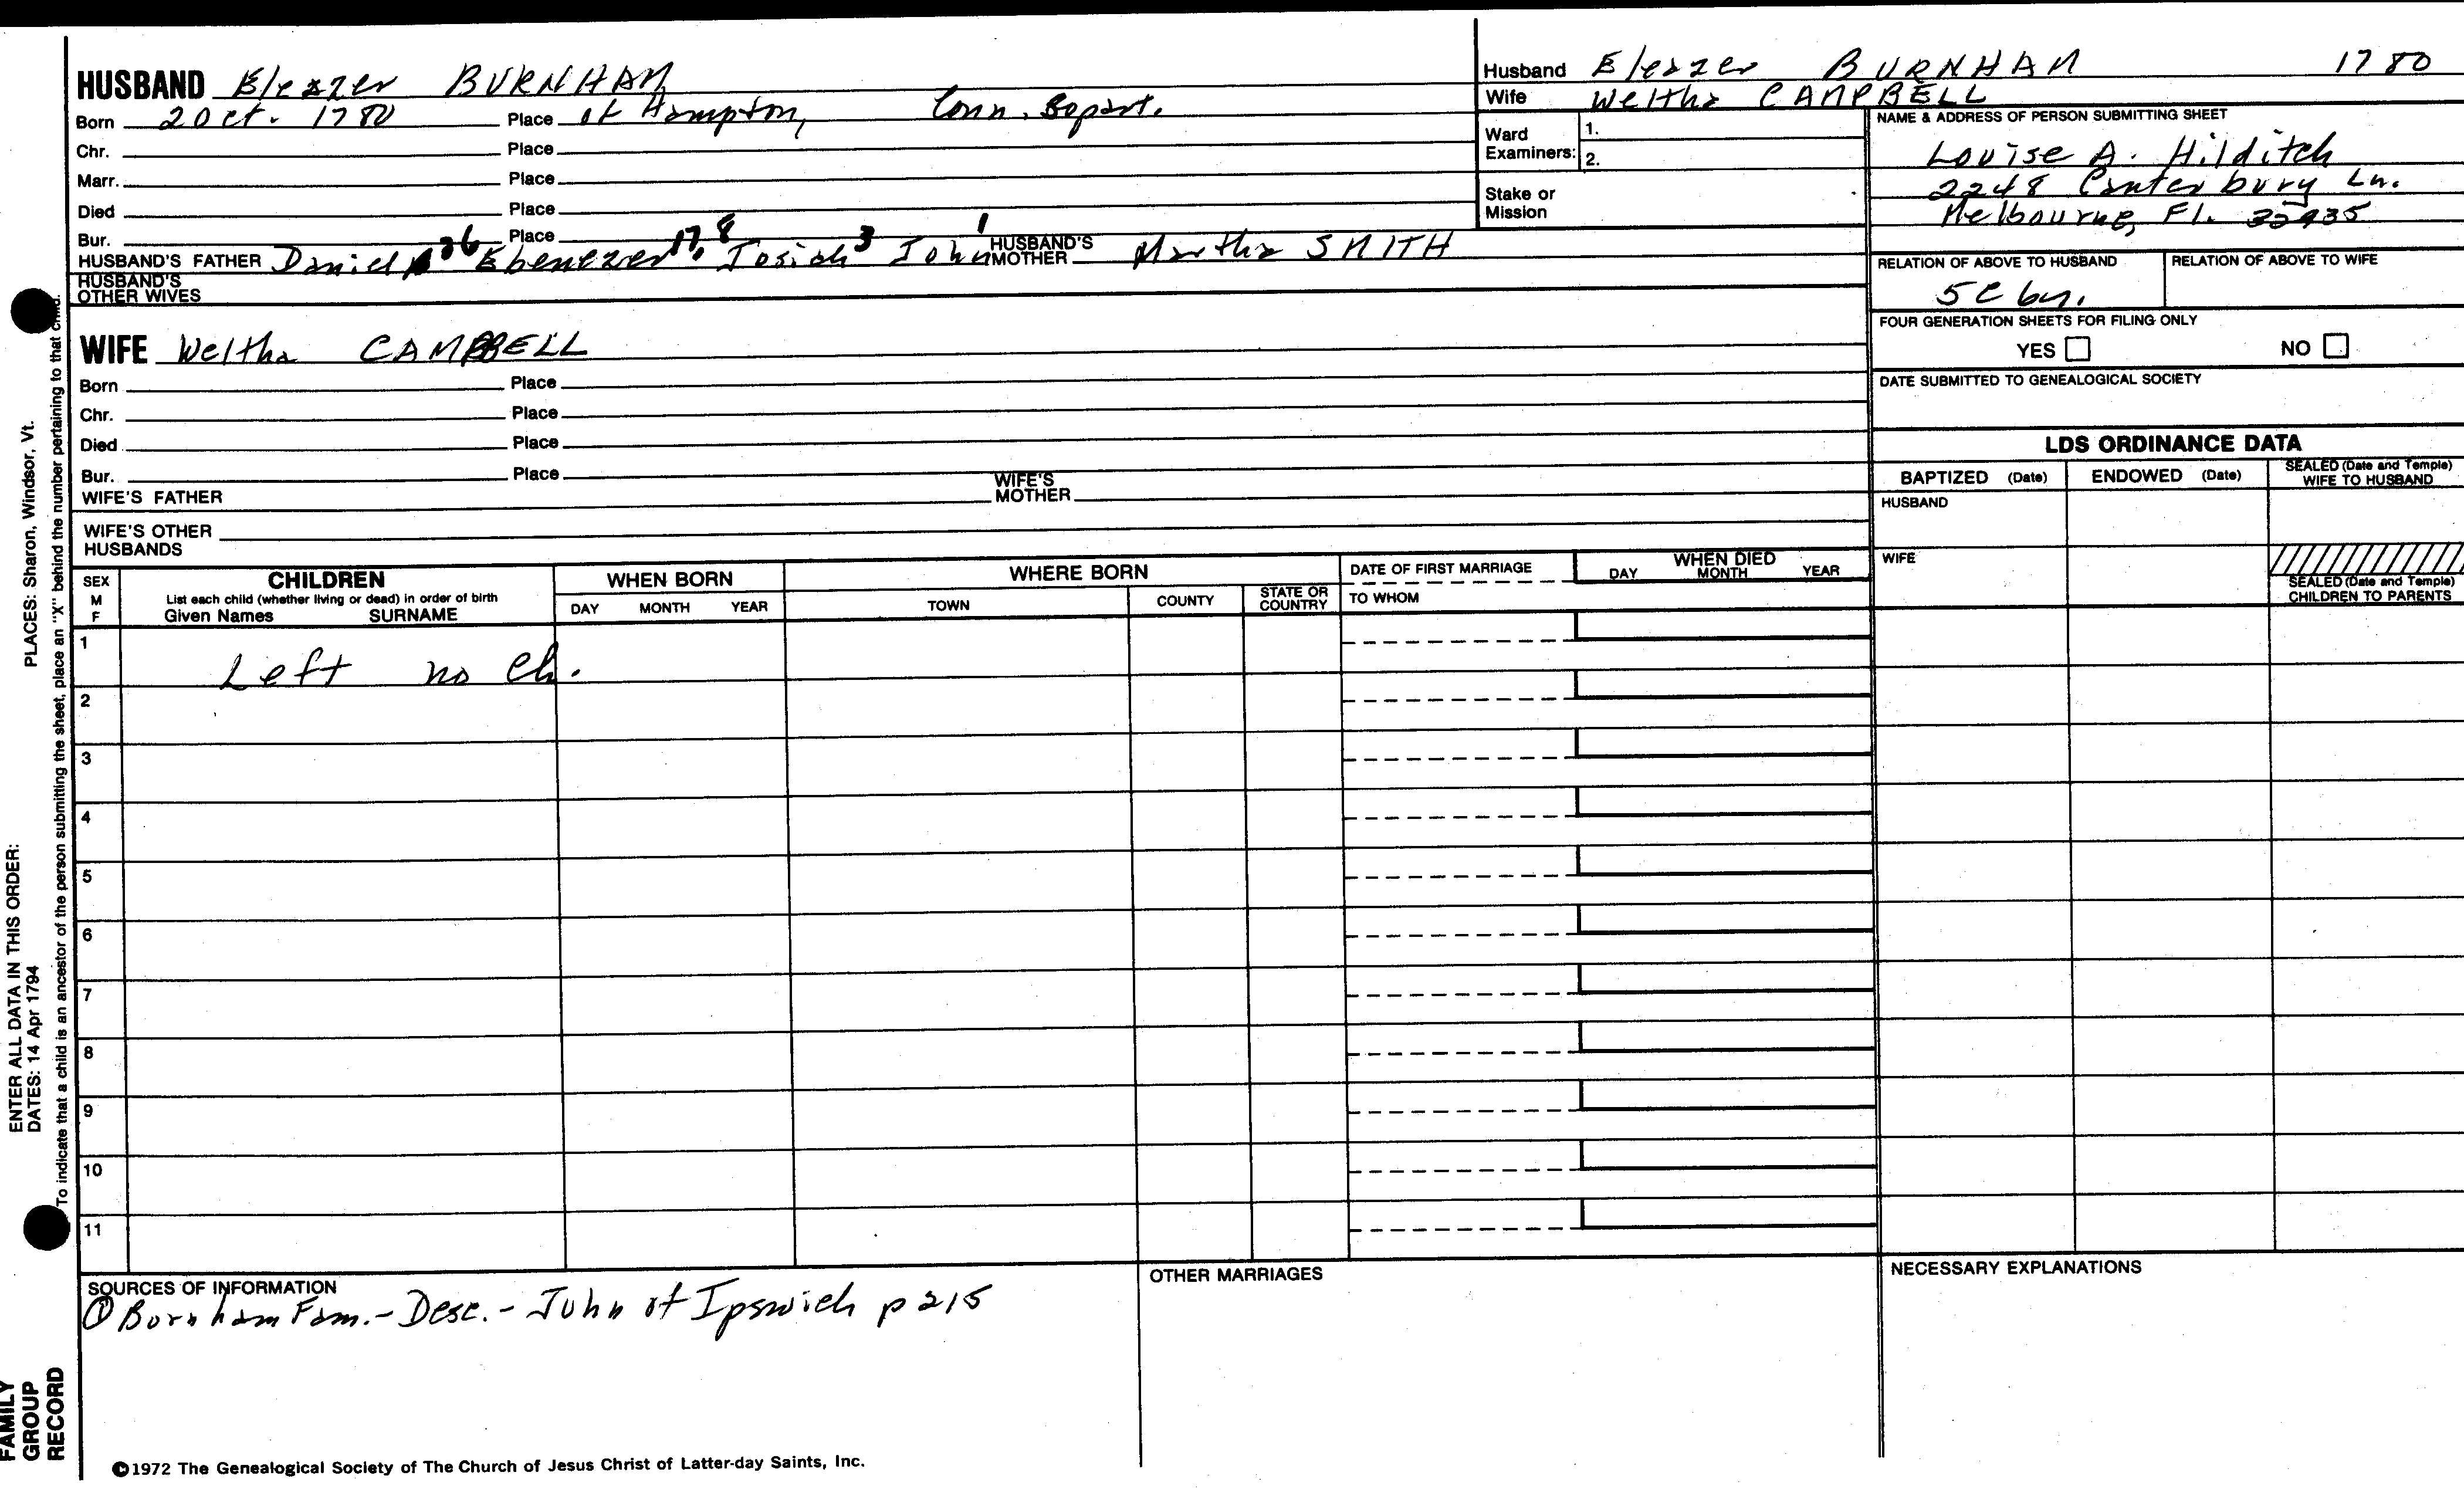 HUSBAND Eleazer BURNHAM
Born 2 Oct. 1780 Place of Hampton, Conn.
Chr. Place
Marr. Place
Died Place
Bur. Place
HUSBAND'S FATHER Daniel Ebenezer Josiah 3 John 1 HUSBAND'S MOTHER Martha SMITH
HUSBAND'S OTHER WIVES
WIFE Weltha CAMPBELL
Born Place
Chr. Place
Died Place
Bur. Place
WIFE'S FATHER WIFE'S MOTHER
WIFE'S OTHER HUSBANDS
Husband Eleazer BURNHAM 1780
Wife Weltha CAMPBELL
Ward Examiners: 1.
2.
Stake or Mission
NAME & ADDRESS OF PERSON SUBMITTING SHEET
Louise A. Hilditch
2248 Canterbury Ln.
Melbourne, Fl.
RELATION OF ABOVE TO HUSBAND RELATION OF ABOVE TO WIFE
5C
FOUR GENERATION SHEETS FOR FILING ONLY
YES NO
DATE SUBMITTED TO GENEALOGICAL SOCIETY
LDS ORDINANCE DATA
BAPTIZED (Date) ENDOWED (Date) SEALED (Date and Temple) WIFE TO HUSBAND
HUSBAND
WIFE
SEALED (Date and Temple) CHILDREN TO PARENTS
SEX M F CHILDREN WHEN BORN WHERE BORN DATE OF FIRST MARRIAGE WHEN DIED
List each child (whether living or dead) in order of birth
Given Names SURNAME DAY MONTH YEAR TOWN COUNTY STATE OR COUNTRY TO WHOM DAY MONTH YEAR
1 Left no Ch.
2
3
4
5
6
7
8
9
10
11
SOURCES OF INFORMATION
① Burnham Fam. - Desc. - John of Ipswich p 215
OTHER MARRIAGES
NECESSARY EXPLANATIONS
©1972 The Genealogical Society of The Church of Jesus Christ of Latter-day Saints, Inc.
ENTER ALL DATA IN THIS ORDER:
DATES: 14 Apr 1794 PLACES: Sharon, Windsor, Vt.
To indicate that a child is an ancestor of the person submitting the sheet, place an "X" behind the number pertaining to that child.
FAMILY GROUP RECORD